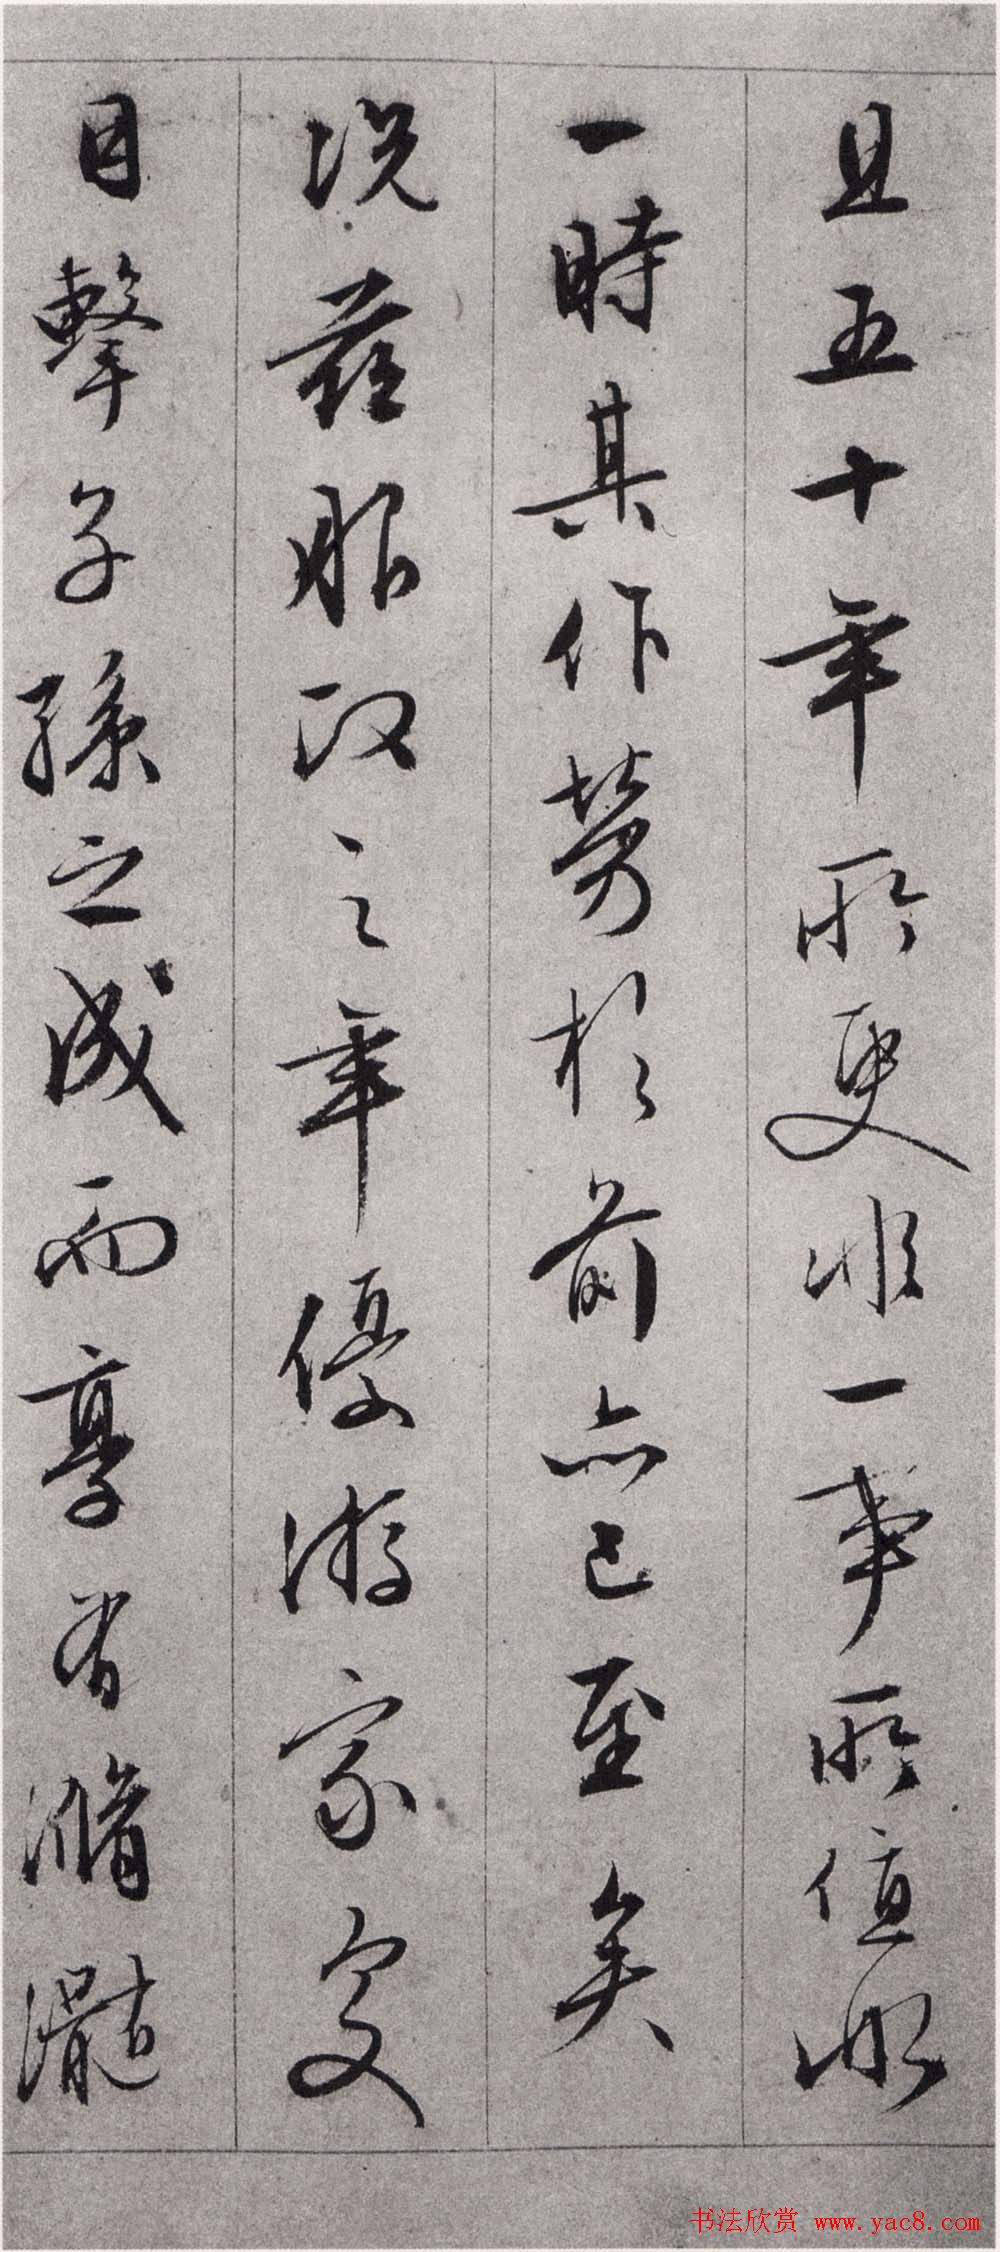 且五十年所更非一事所值非
一時其作勞於前亦已至矣
況茲服政之年優游家
目擊子孫之成而享有滫瀡
书法欣赏 www.yac8.com